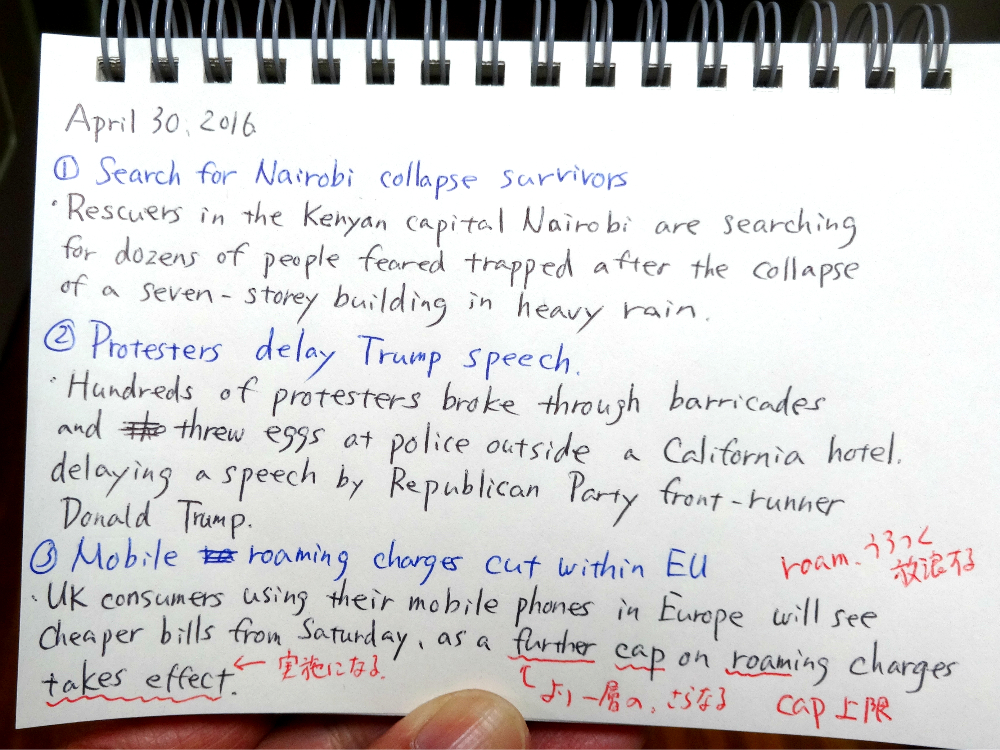 April 30, 2016
① Search for Nairobi collapse survivors
・Rescuers in the Kenyan capital Nairobi are searching
for dozens of people feared trapped after the collapse
of a seven-storey building in heavy rain.
② Protesters delay Trump speech.
・Hundreds of protesters broke through barricades
and threw eggs at police outside a California hotel.
delaying a speech by Republican Party front-runner
Donald Trump.
③ Mobile roaming charges cut within EU
roam. うろつく
放浪する
・UK consumers using their mobile phones in Europe will see
cheaper bills from Saturday, as a further cap on roaming charges
takes effect.
← 実施になる
より一層の、さらなる
cap 上限